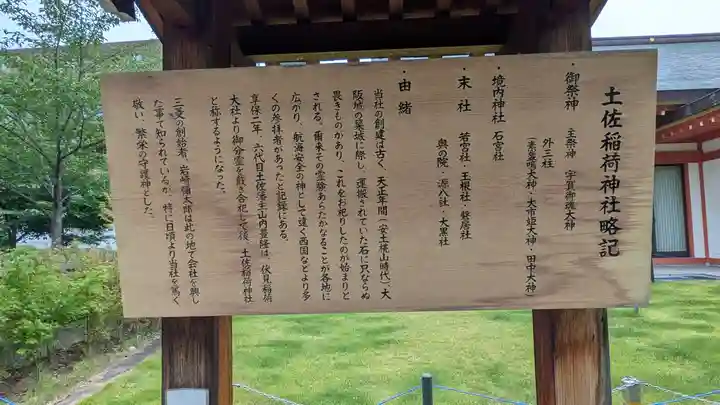 土佐稲荷神社略記
・御祭神 主祭神 宇賀御魂大神
外三柱
(素盞嗚大神・大市姫大神・田中大神)
・境内神社 石宮社
・末社 若宮社・玉根社・磐居社
奥の院・源八社・大黒社
・由緒
当社の創建は古く、天正年間(安土桃山時代)、大
阪城の築城に際し、運搬されていた石に只ならぬ
畏きものがあり、これをお祀りしたのが始まりと
される。爾来その霊験あらたかなることが各地に
広がり、航海安全の神として遠く西国などより多
くの参拝者があったと記録にある。
享保二年、六代目土佐藩主山内豊隆は、伏見稲荷
大社より御分霊を戴き合祀して後、土佐稲荷神社
と称するようになった。
三菱の創始者、岩崎彌太郎は此の地で会社を興し
た事で知られているが、特に日頃より当社を篤く
敬い、繁栄の守護神とした。